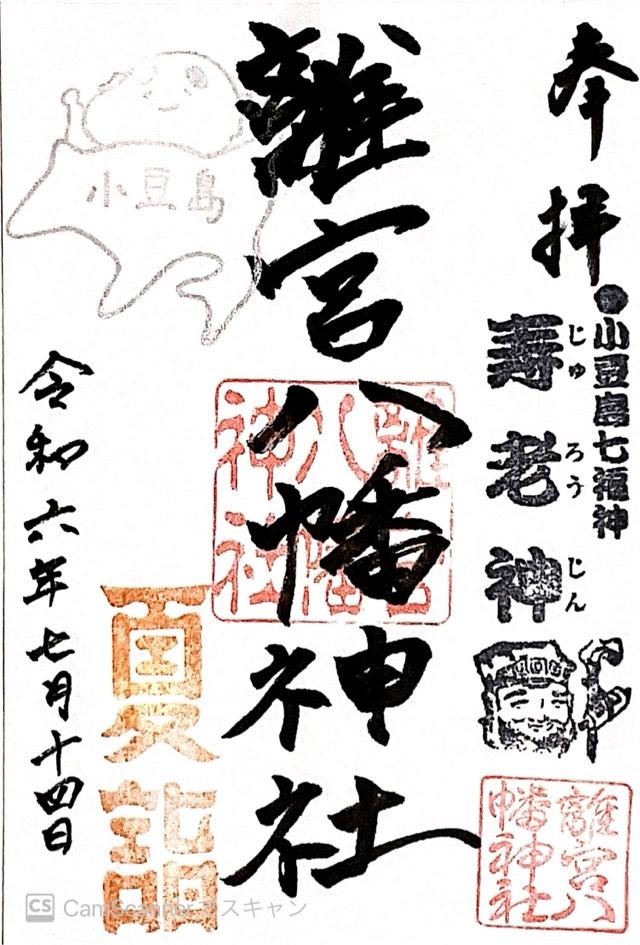 奉拝
●小豆島七福神
じゅ ろう じん
寿老神
離宮八幡神社
離宮八幡神社
離宮八幡神社
小豆島
夏詣
令和六年七月十四日
CS CamScanner でスキャン